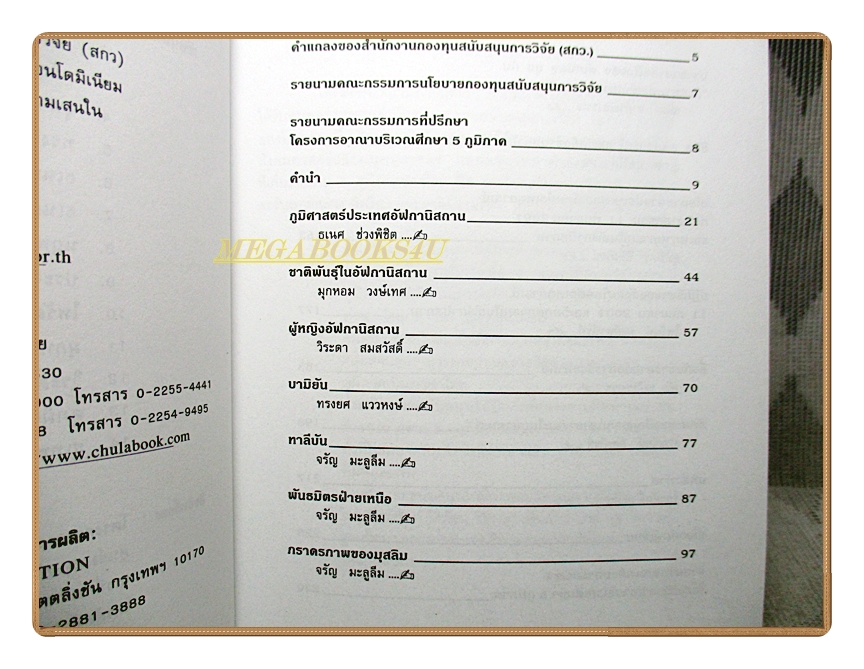 (สกว)
มเสนใน
or.th
30
000 โทรสาร 0-2255-4441
8 โทรสาร 0-2254-9495
www.chulabook.com
ารผลิต:
TION
ตลิ่งชัน กรุงเทพฯ 10170
-2881-3888
คำแถลงของสำนักงานกองทุนสนับสนุนการวิจัย (สกว.) 5
รายนามคณะกรรมการนโยบายกองทุนสนับสนุนการวิจัย 7
รายนามคณะกรรมการที่ปรึกษา
โครงการอาณาบริเวณศึกษา 5 ภูมิภาค 8
คำนำ 9
ภูมิศาสตร์ประเทศอัฟกานิสถาน 21
ธเนศ ช่วงพิชิต ....✍
MEGABOOKS4U
ชาติพันธุ์ในอัฟกานิสถาน 44
มุกหอม วงษ์เทศ ....✍
ผู้หญิงอัฟกานิสถาน 57
วิระดา สมสวัสดิ์ ....✍
บามิยัน 70
ทรงยศ แววหงษ์ ....✍
ทาลีบัน 77
จรัญ มะลูลีม ....✍
พันธมิตรฝ่ายเหนือ 87
จรัญ มะลูลีม ....✍
ภราดรภาพของมุสลิม 97
จรัญ มะลูลีม ....✍